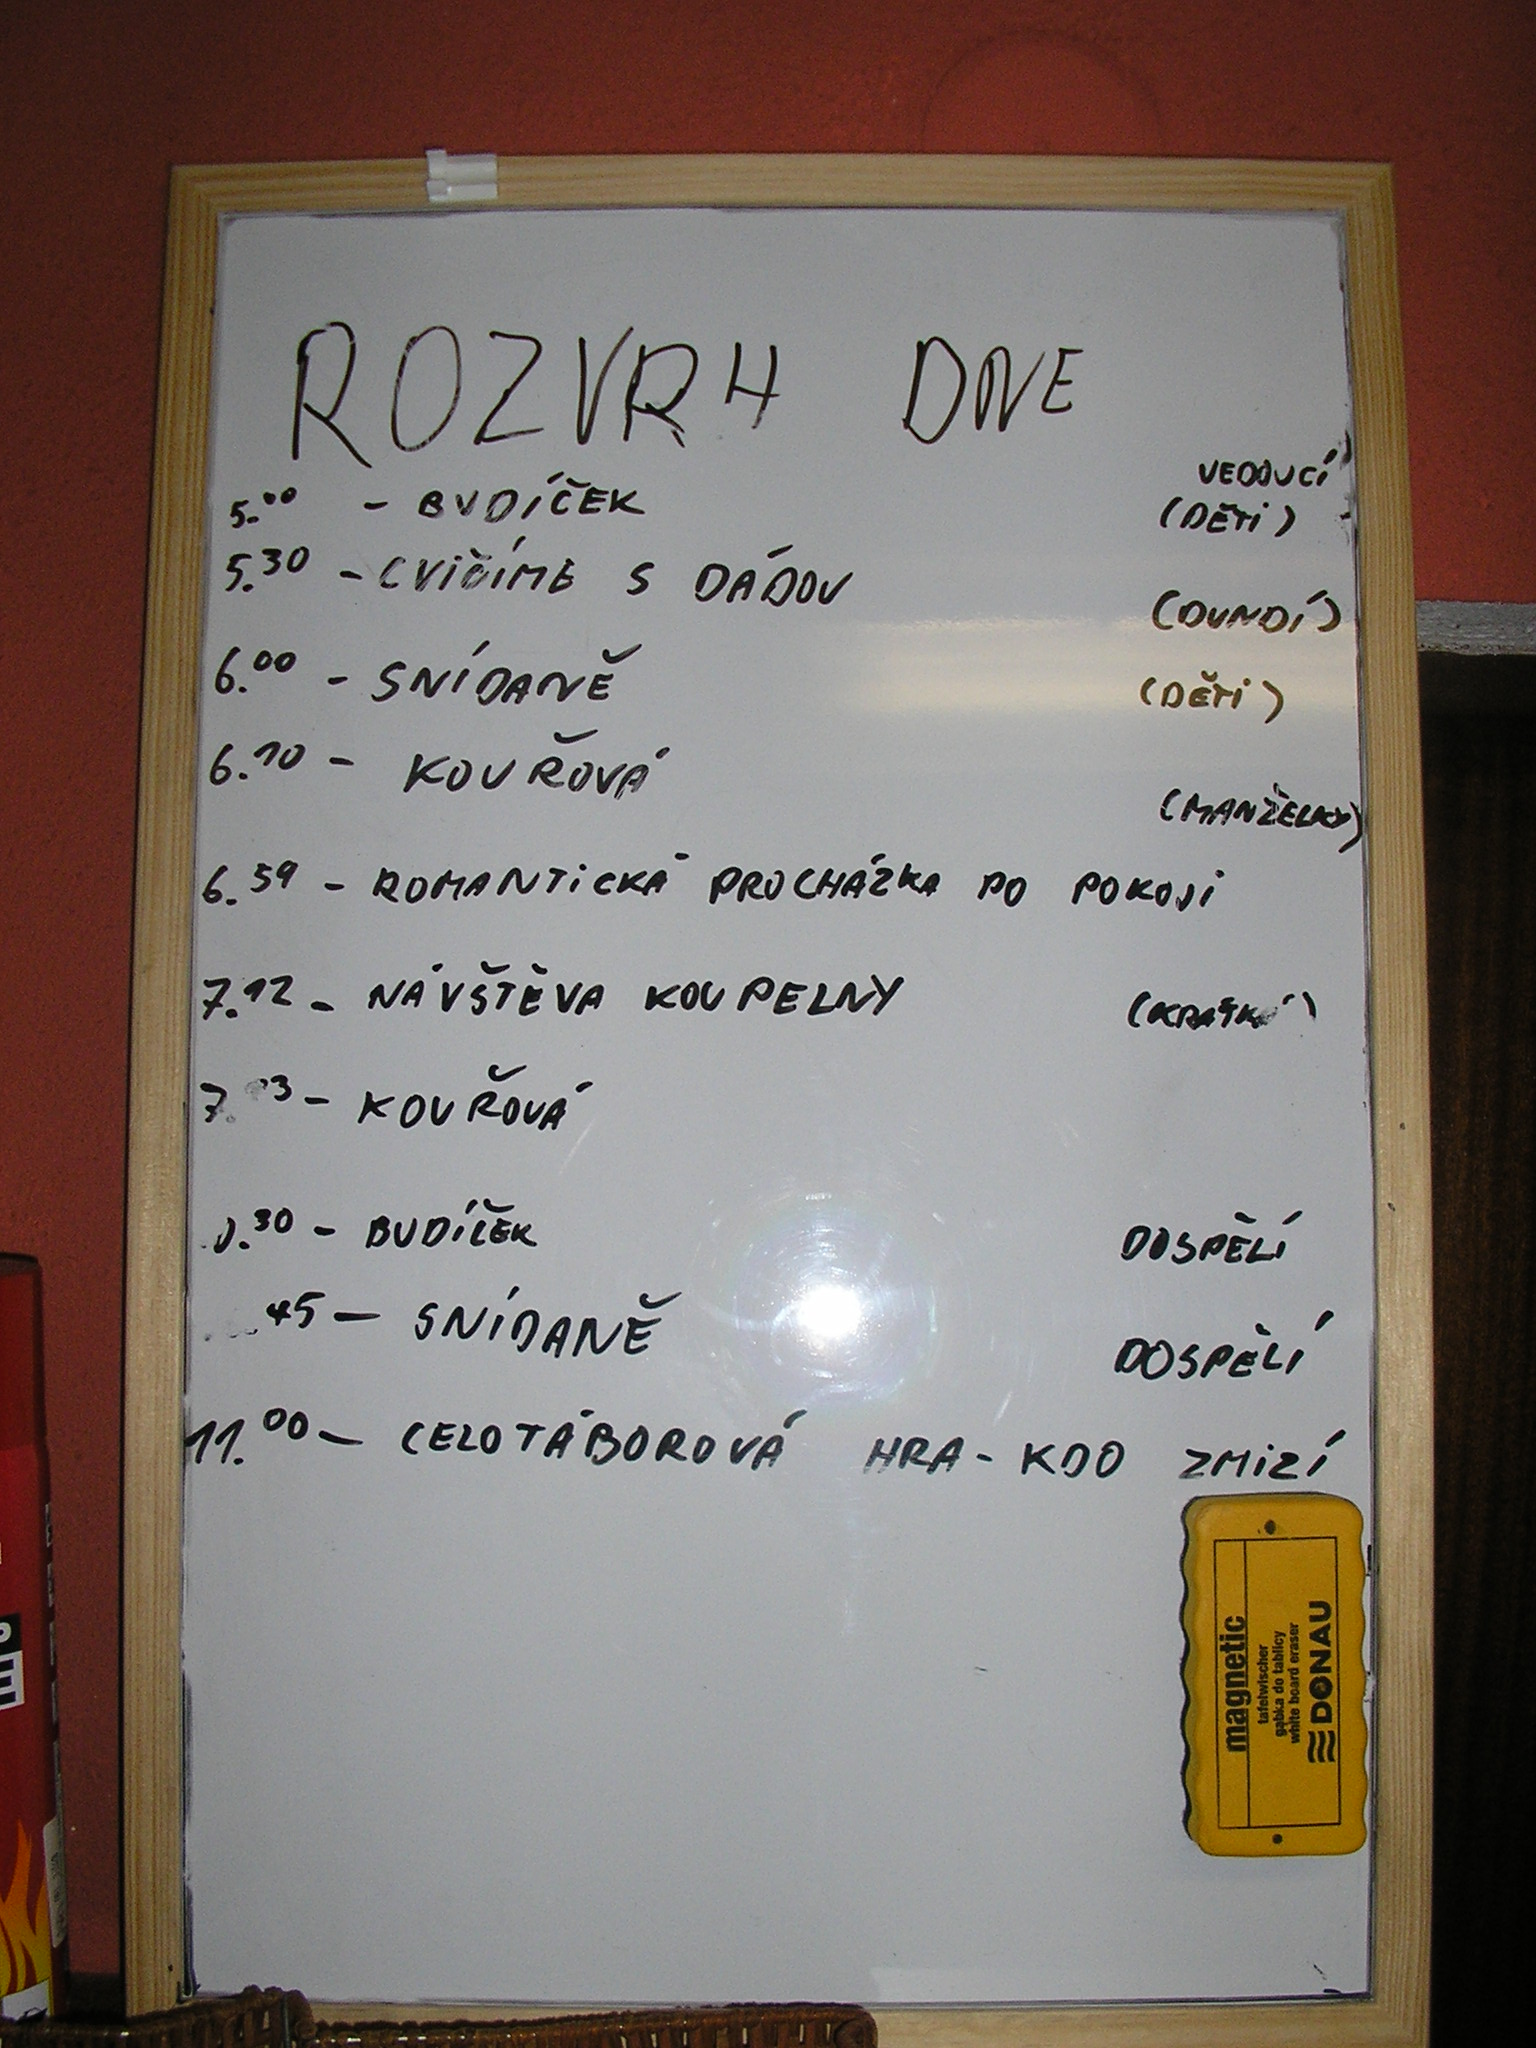 ROZVRH DNE
VEDOUCÍ
5.00 - BUDÍČEK (DĚTI)
5.30 - CVIČÍME S DÁĎOU
(DUNDÍ)
6.00 - SNÍDANĚ (DĚTI)
6.10 - KOUŘOVÁ
(MANŽELKY)
6.59 - ROMANTICKÁ PROCHÁZKA PO POKOJI
7.12 - NÁVŠTĚVA KOUPELNY (KRÁTKÁ)
KOUŘOVÁ
BUDÍČEK DOSPĚLÍ
45 - SNÍDANĚ DOSPĚLÍ
11.00 - CELOTÁBOROVÁ HRA - KDO ZMIZÍ
magnetic
tafelwischer
gąbka do tablicy
white board eraser
DONAU